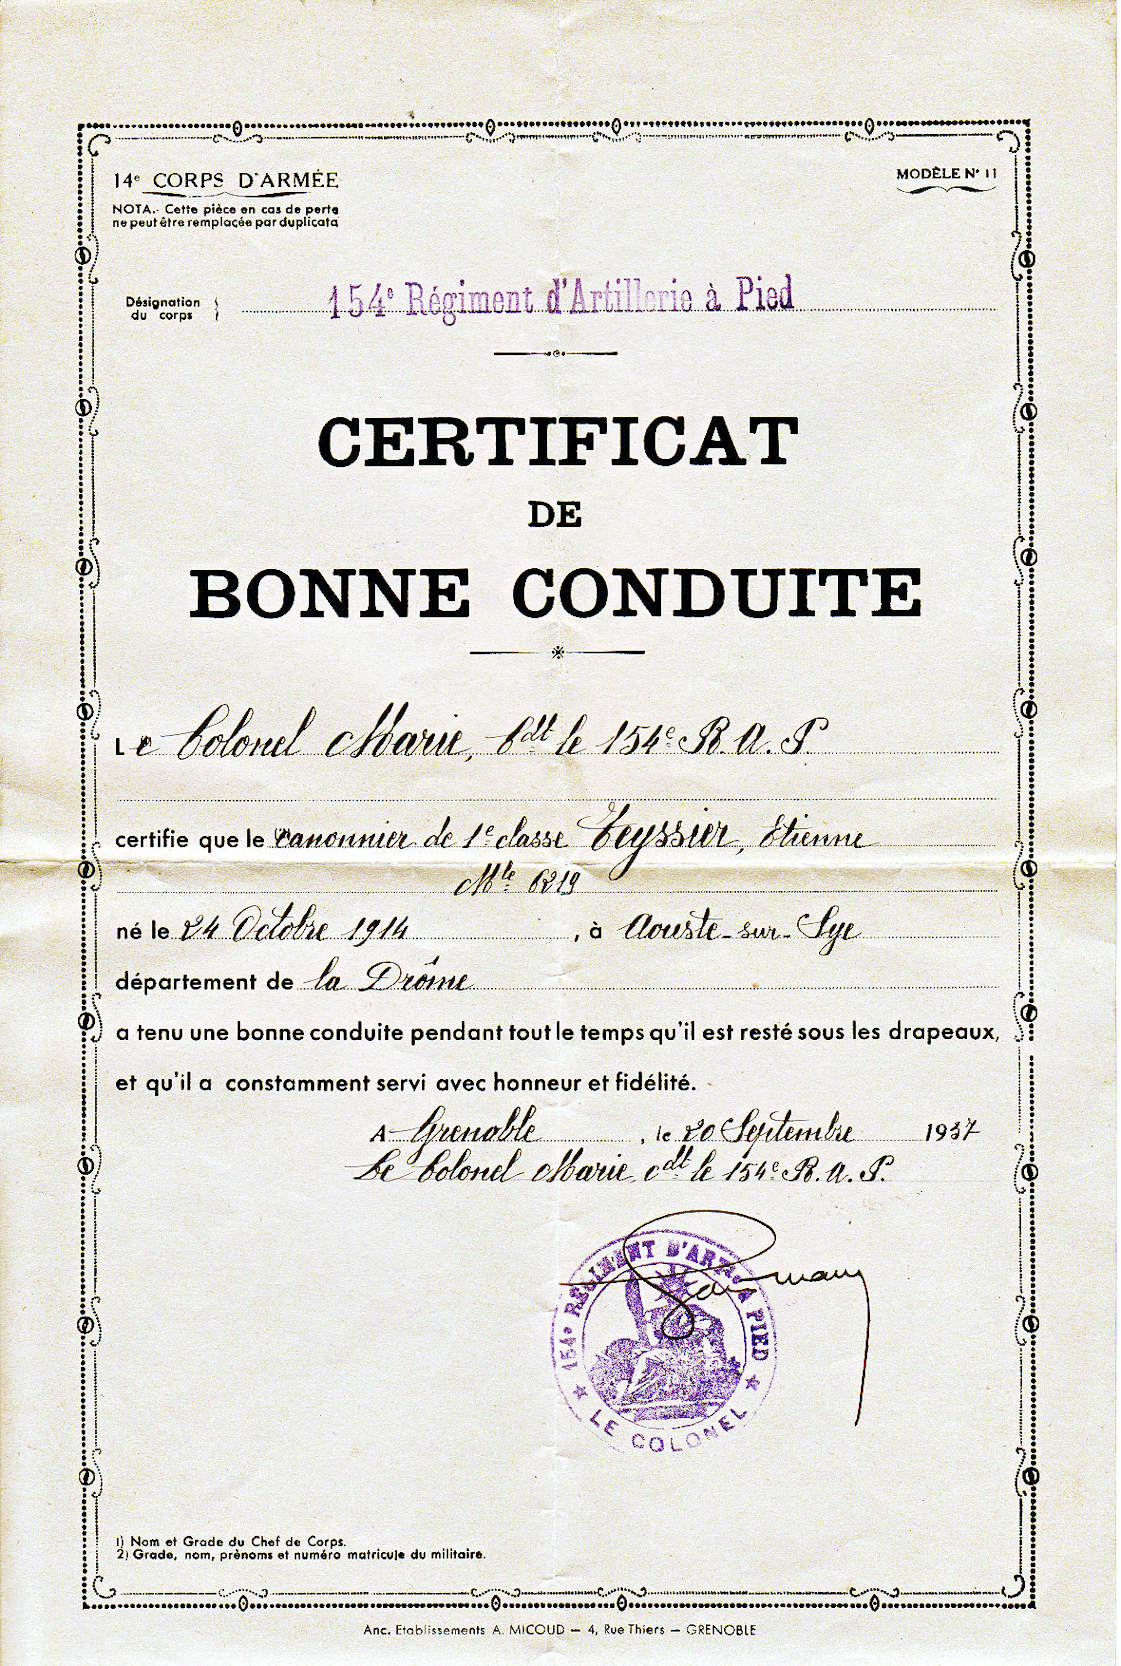 14e CORPS D'ARMÉE
MODÈLE N° 11
NOTA.- Cette pièce en cas de perte
ne peut être remplacée par duplicata
Désignation
du corps
154e Régiment d'Artillerie à Pied
CERTIFICAT
DE
BONNE CONDUITE
Le Colonel Marie, Cdt le 154e R. A. P
certifie que le Canonnier de 1e classe Teyssier, Etienne
Mle 6219
né le 24 Octobre 1914, à Aouste-sur-Sye
département de la Drôme
a tenu une bonne conduite pendant tout le temps qu'il est resté sous les drapeaux,
et qu'il a constamment servi avec honneur et fidélité.
A Grenoble, le 20 Septembre 1937
Le Colonel Marie, Cdt le 154e R. A. P.
154e RÉGIMENT D'ARTie À PIED
LE COLONEL
1) Nom et Grade du Chef de Corps.
2) Grade, nom, prènoms et numéro matricule du militaire.
Anc. Etablissements A. MICOUD – 4, Rue Thiers – GRENOBLE